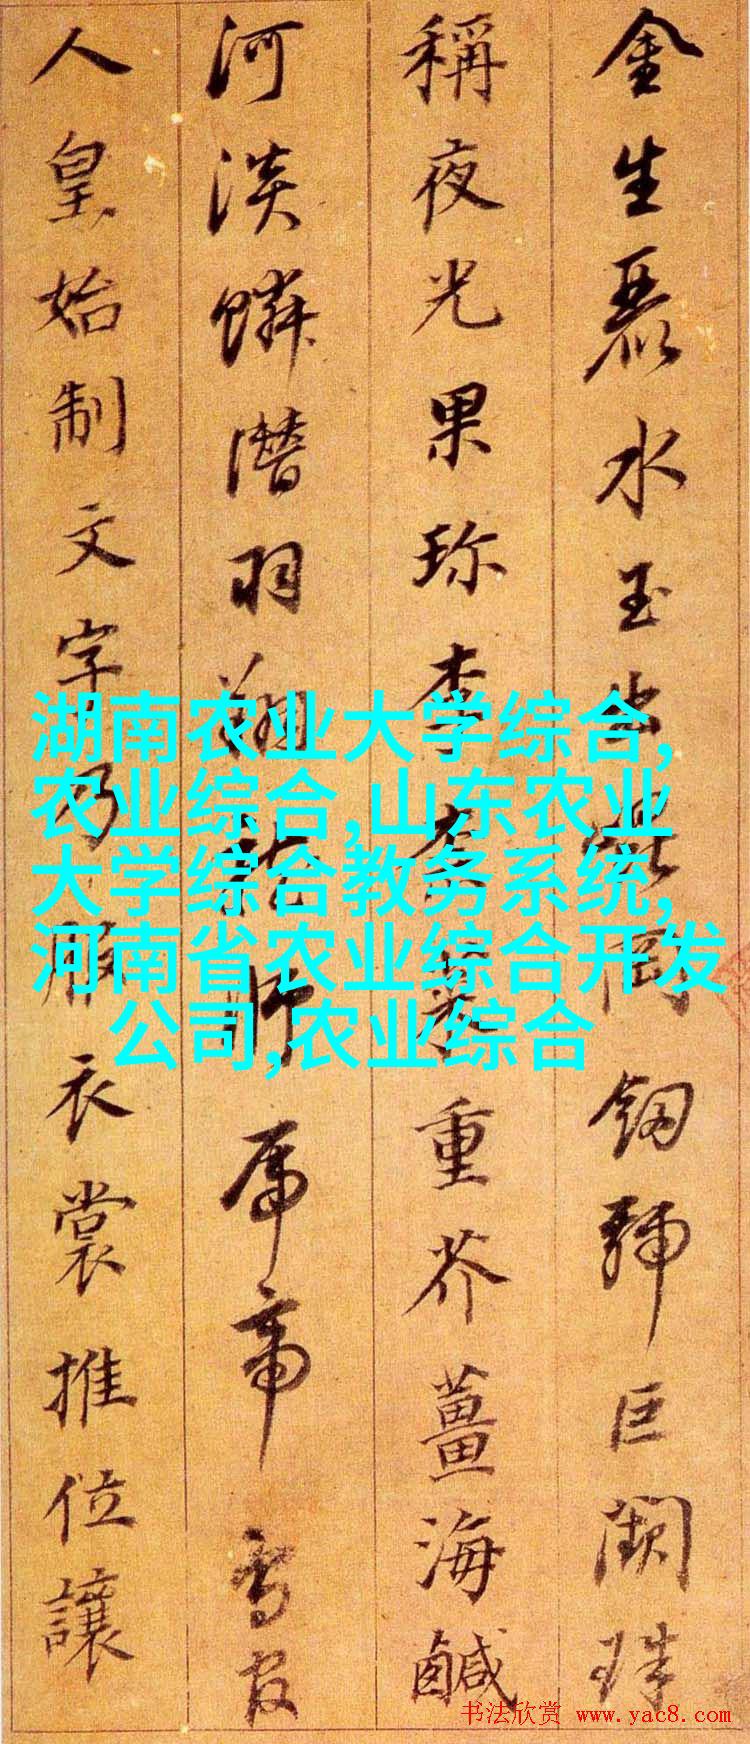 金生麗水玉出崐岡釰號巨闕珠
稱夜光果珎李柰菜重芥薑海鹹
河淡鱗潛羽翔龍師帝鳥官
人皇始制文字乃服衣裳推位讓
湖南农业大学综合,
农业综合,山东农业
大学综合教务系统,
河南省农业综合开发
公司,农业综合
书法欣赏 www.yac8.com